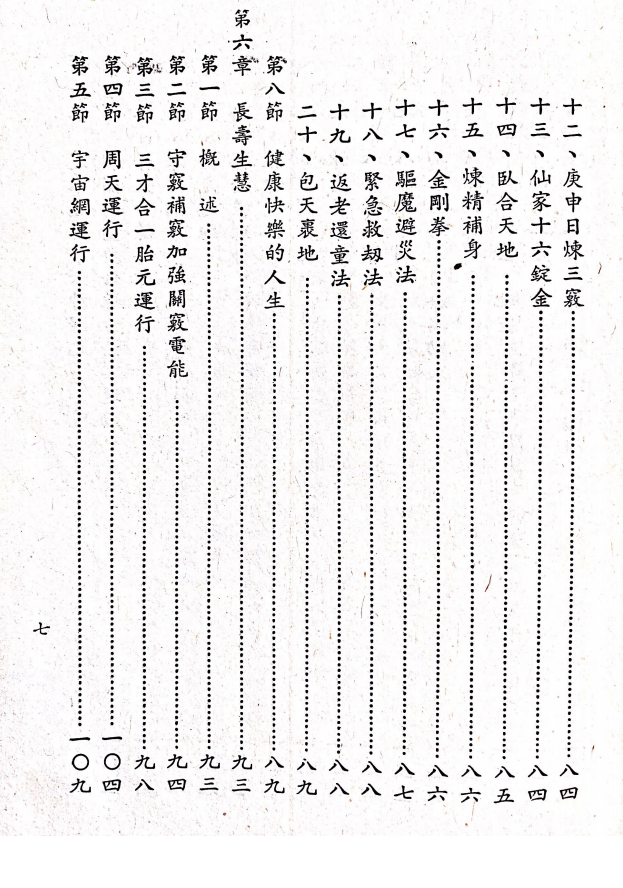 十二、庚申日煉三竅……八四
十三、仙家十六錠金……八四
十四、臥合天地……八五
十五、煉精補身……八六
十六、金剛拳……八六
十七、驅魔避災法……八七
十八、緊急救劫法……八八
十九、返老還童法……八八
二十、包天裹地……八九
第八節 健康快樂的人生……八九
第六章 長壽生慧……九三
第一節 概述……九三
第二節 守竅補竅加強關竅電能……九四
第三節 三才合一胎元運行……九八
第四節 周天運行……一〇四
第五節 宇宙網運行……一〇九
七